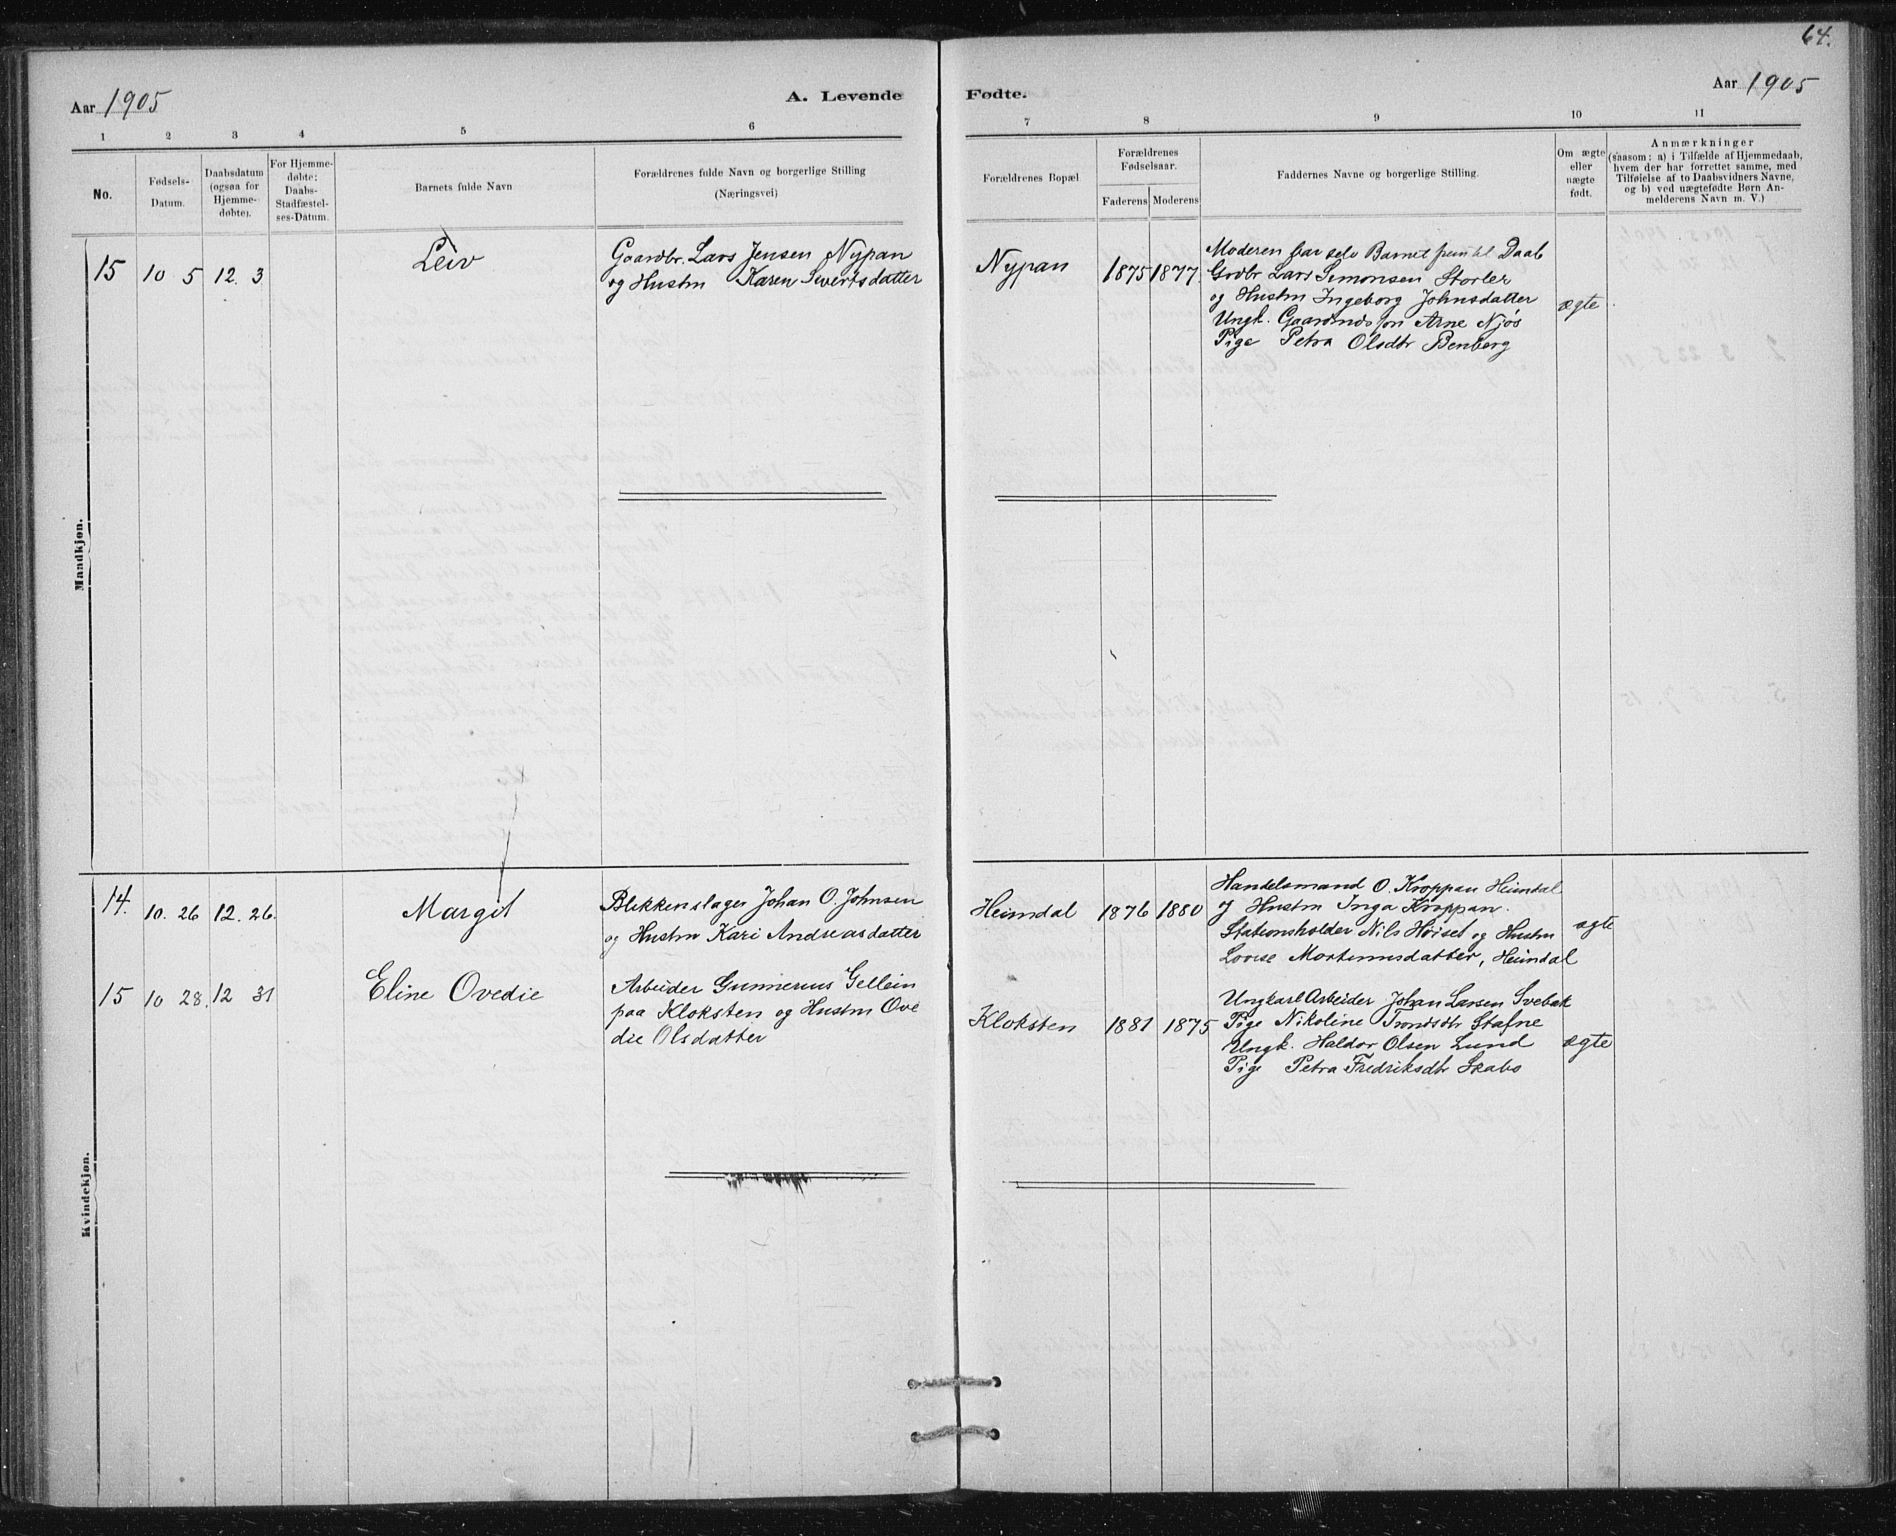 64.
Aar 1905
A. Levende Fødte.
Aar 1905
1 2 3 4 5 6 7 8 9 10 11
No.
Fødsels-
Datum.
Daabsdatum
(ogsaa for
Hjemme-
døbte).
For Hjemme-
døbte:
Daabs-
Stadfæstel-
ses-Datum.
Barnets fulde Navn
Forældrenes fulde Navn og borgerlige Stilling
(Næringsvei)
Forældrenes Bopæl.
Forældrenes
Fødselsaar.
Faderens Moderens
Faddernes Navne og borgerlige Stilling.
Om ægte
eller
nægte
født.
Anmærkninger
(saasom: a) i Tilfælde af Hjemmedaab,
hvem der har forrettet samme, med
Tilføielse af to Daabsvidners Navne,
og b) ved uægtefødte Børn An-
melderens Navn m. V.)
Mandkjøn.
15 10 5 12. 3
Leiv
Gaardbr. Lars Jensen Nypan
og Hustru Karen Ivertsdatter
Nypan 1875 1877.
Moderen bar selv Barnet frem til Daab
Grdbr Lars Simonsen Storler
og Hustru Ingeborg Johnsdatter
Ungk. Gaardmds søn Arne Njøs
Pige Petra Olsdtr Benberg
ægte
14. 10. 26 12. 26.
Margit
Blikkenslager Johan O. Johnsen
og Hustru Kari Andreasdatter
Heimdal 1876 1880
Handelsmand O. Kroppan Heimdal
Hustru Inga Kroppan.
Stationsholder Nils Høiset og Hustru
Lovise Mortinusdatter, Heimdal
ægte
15 10 28. 12 31
Eline Ovedie
Arbeider Gunnerius Gellein
paa Kloksten og Hustru Ove
die Olsdatter
Kloksten 1881 1875
Ungkarl Arbeider Johan Larsen Svebak
Pige Nikoline Trondsdtr Stafne
Ungk. Haldor Olsen Lund
Pige Petra Fredriksdtr Skabo
ægte
Kvindekjøn.